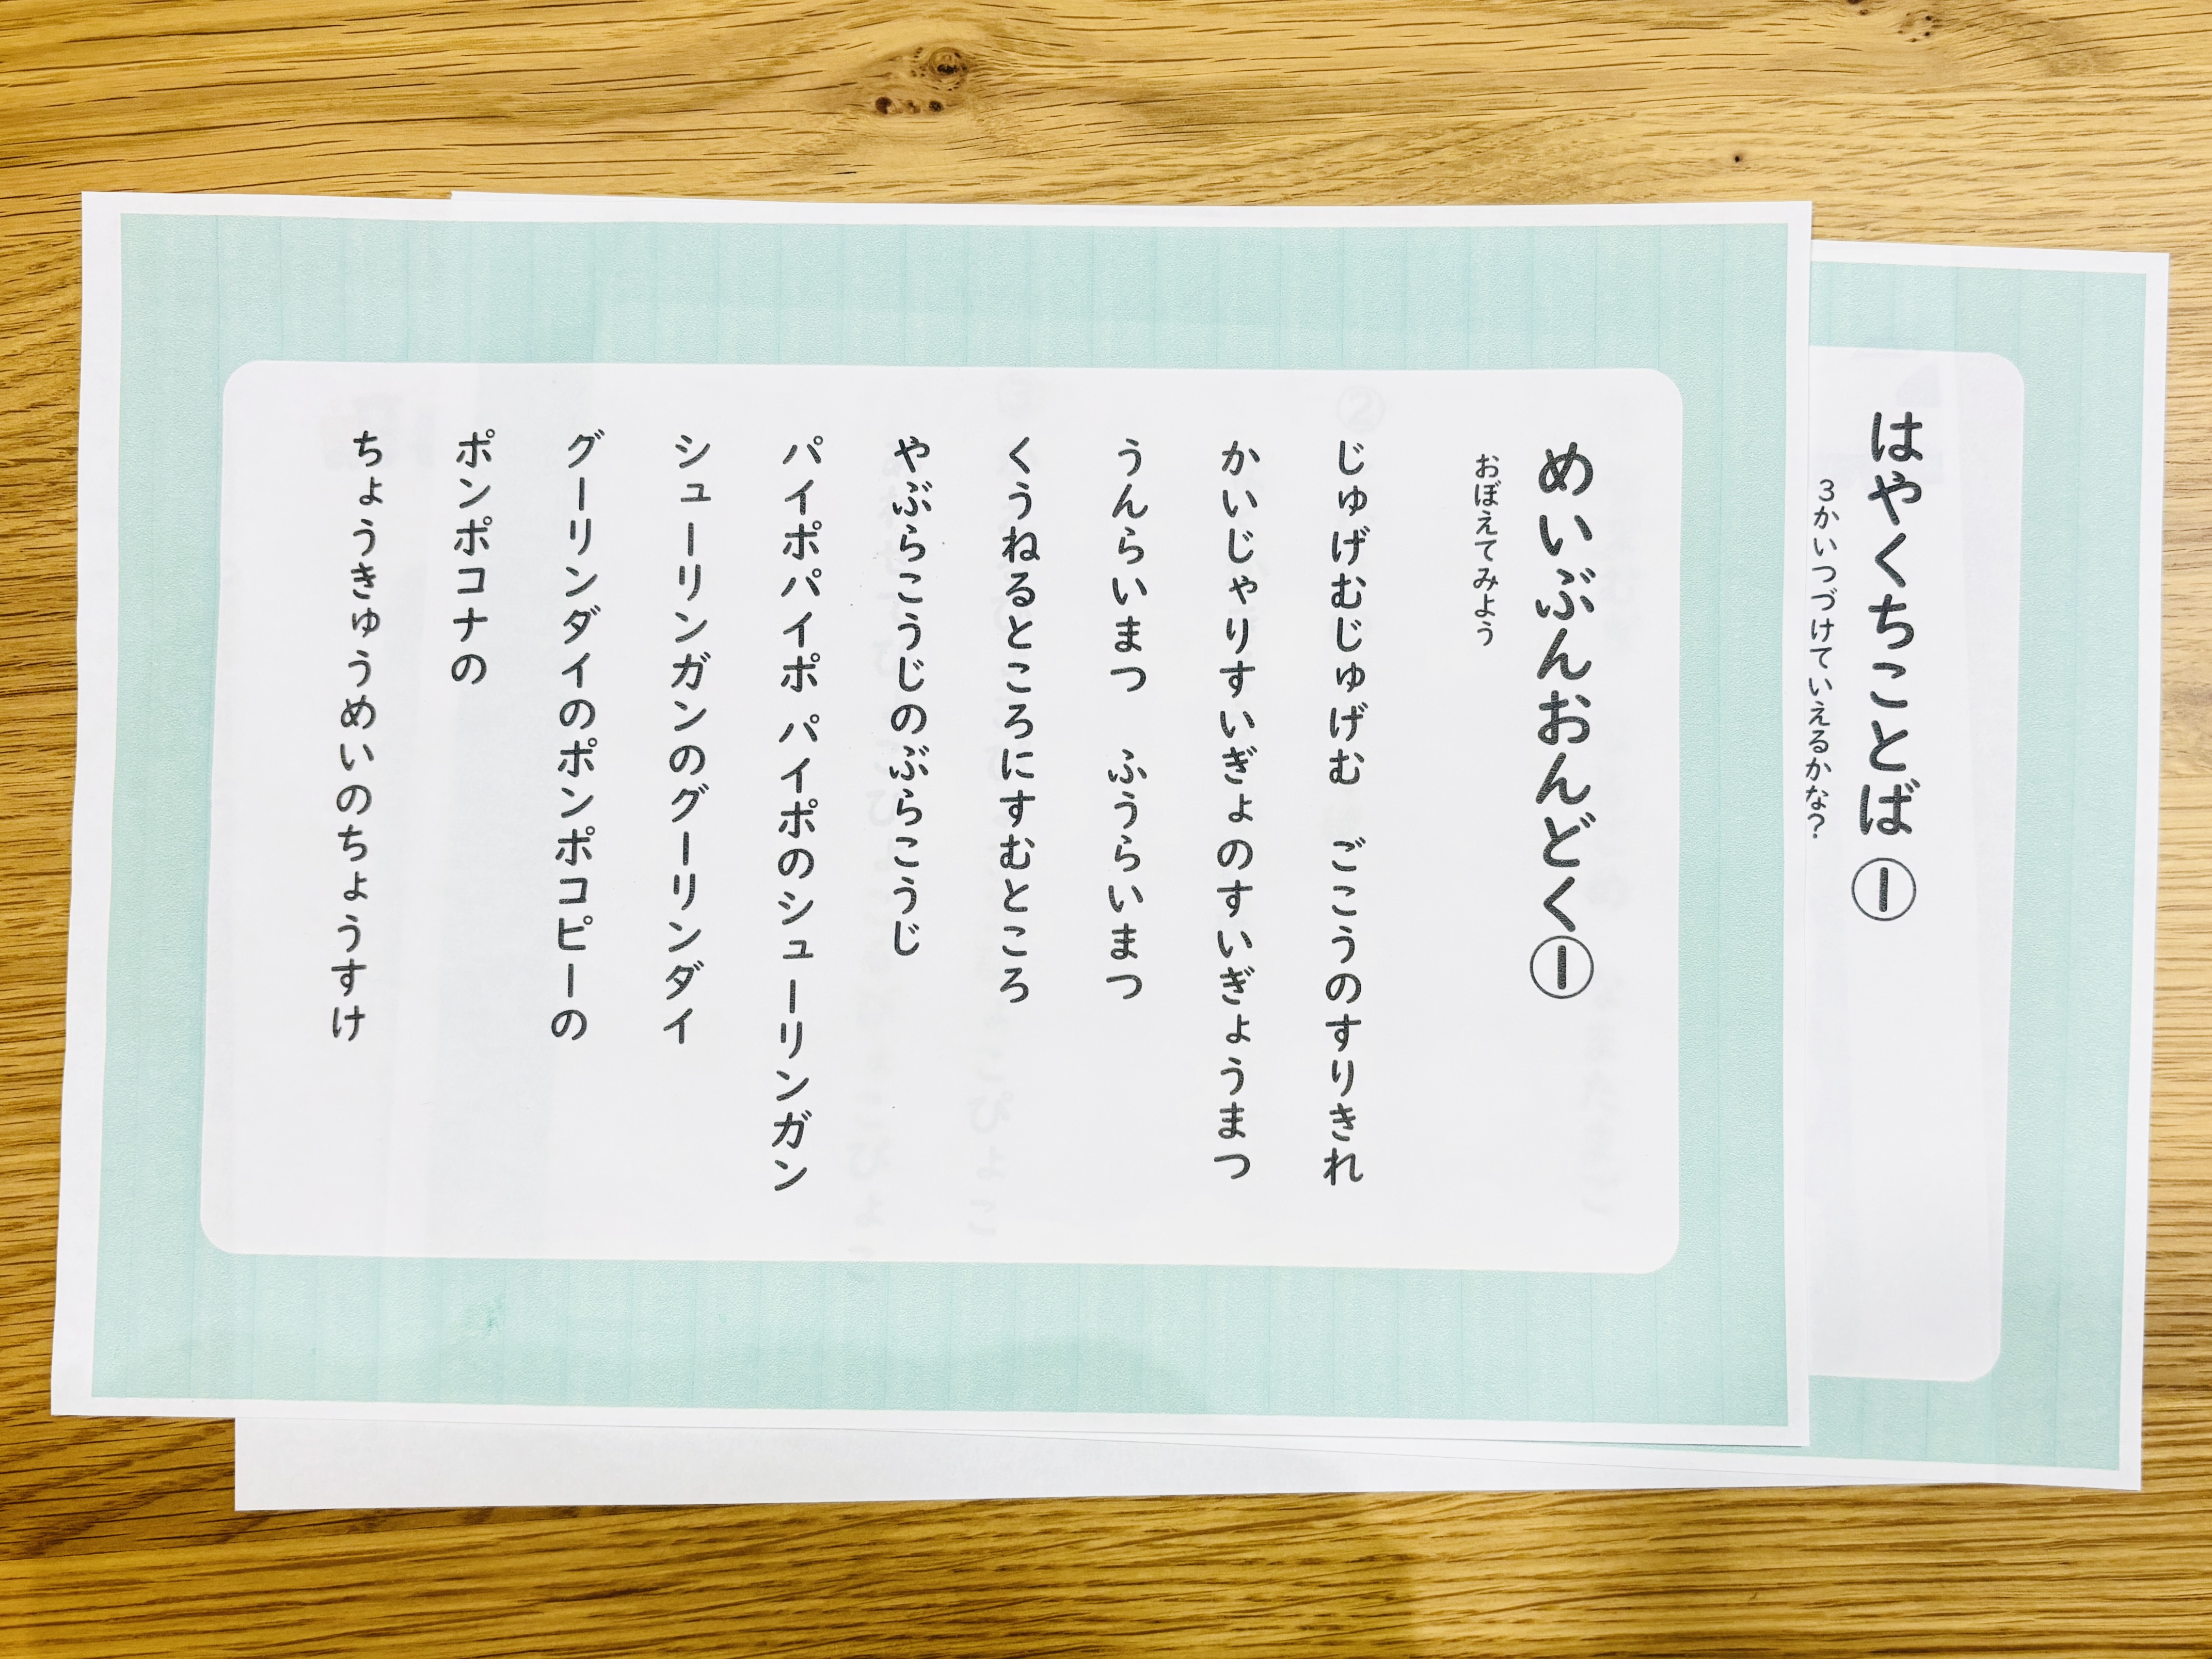 はやくちことば①
３かいつづけていえるかな？
めいぶんおんどく①
おぼえてみよう
じゅげむじゅげむ　ごこうのすりきれ
かいじゃりすいぎょのすいぎょうまつ
うんらいまつ　ふうらいまつ
くうねるところにすむところ
やぶらこうじのぶらこうじ
パイポパイポ パイポのシューリンガン
シューリンガンのグーリンダイ
グーリンダイのポンポコピーの
ポンポコナの
ちょうきゅうめいのちょうすけ